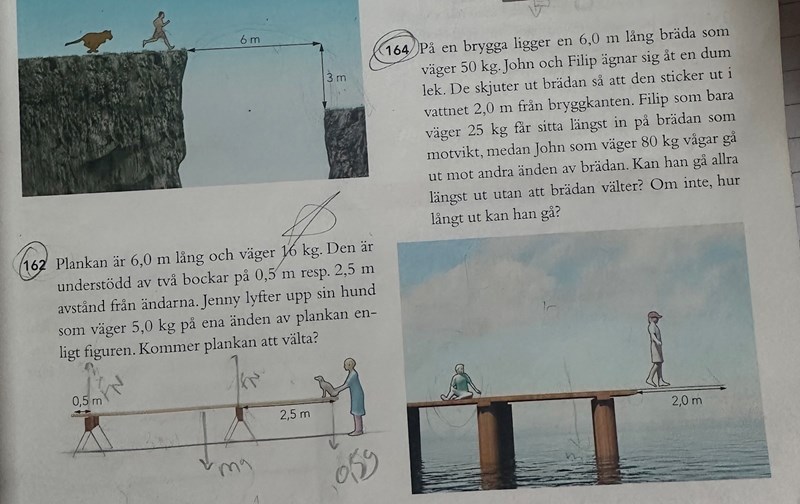 6 m
3 m
162 Plankan är 6,0 m lång och väger 16 kg. Den är
understödd av två bockar på 0,5 m resp. 2,5 m
avstånd från ändarna. Jenny lyfter upp sin hund
som väger 5,0 kg på ena änden av plankan en-
ligt figuren. Kommer plankan att välta?
0,5 m
2,5 m
mg
164 På en brygga ligger en 6,0 m lång bräda som
väger 50 kg. John och Filip ägnar sig åt en dum
lek. De skjuter ut brädan så att den sticker ut i
vattnet 2,0 m från bryggkanten. Filip som bara
väger 25 kg får sitta längst in på brädan som
motvikt, medan John som väger 80 kg vågar gå
ut mot andra änden av brädan. Kan han gå allra
längst ut utan att brädan välter? Om inte, hur
långt ut kan han gå?
2,0 m